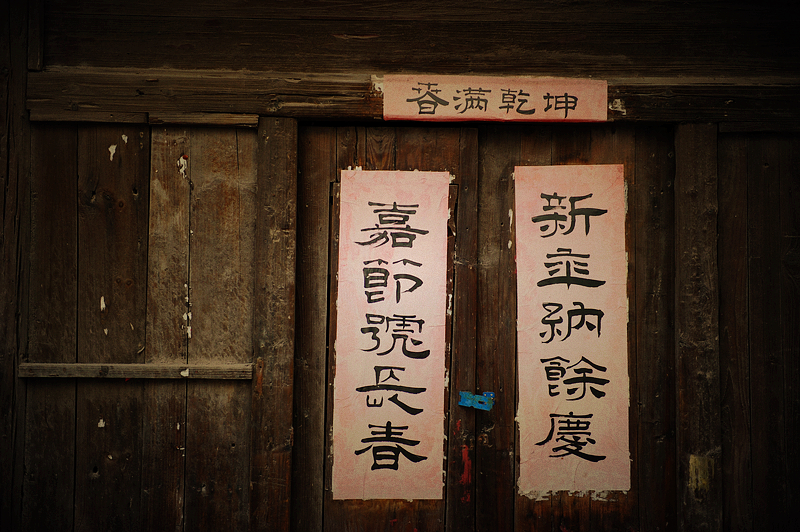 春满乾坤
新年納餘慶
嘉節號長春